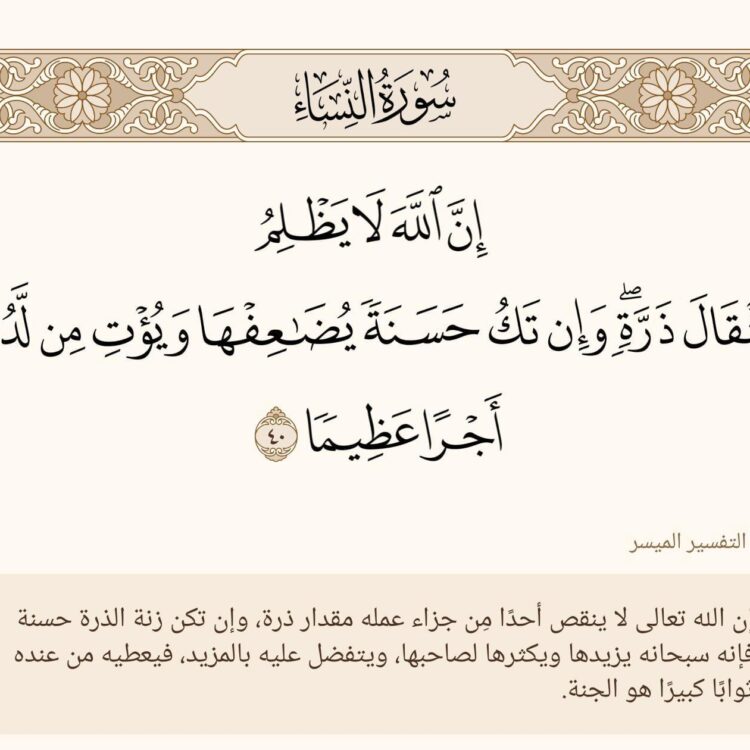 سُورَةُ النِّسَاءِ
إِنَّ ٱللَّهَ لَا يَظۡلِمُ
ذَرَّةٖۖ وَإِن تَكُ حَسَنَةٗ يُضَٰعِفۡهَا وَيُؤۡتِ مِن
أَجۡرًا عَظِيمٗا ٤٠
التفسير الميسر
الله تعالى لا ينقص أحدًا مِن جزاء عمله مقدار ذرة، وإن تكن زنة الذرة حسنة
فإنه سبحانه يزيدها ويكثرها لصاحبها، ويتفضل عليه بالمزيد، فيعطيه من عنده
كبيرًا هو الجنة.